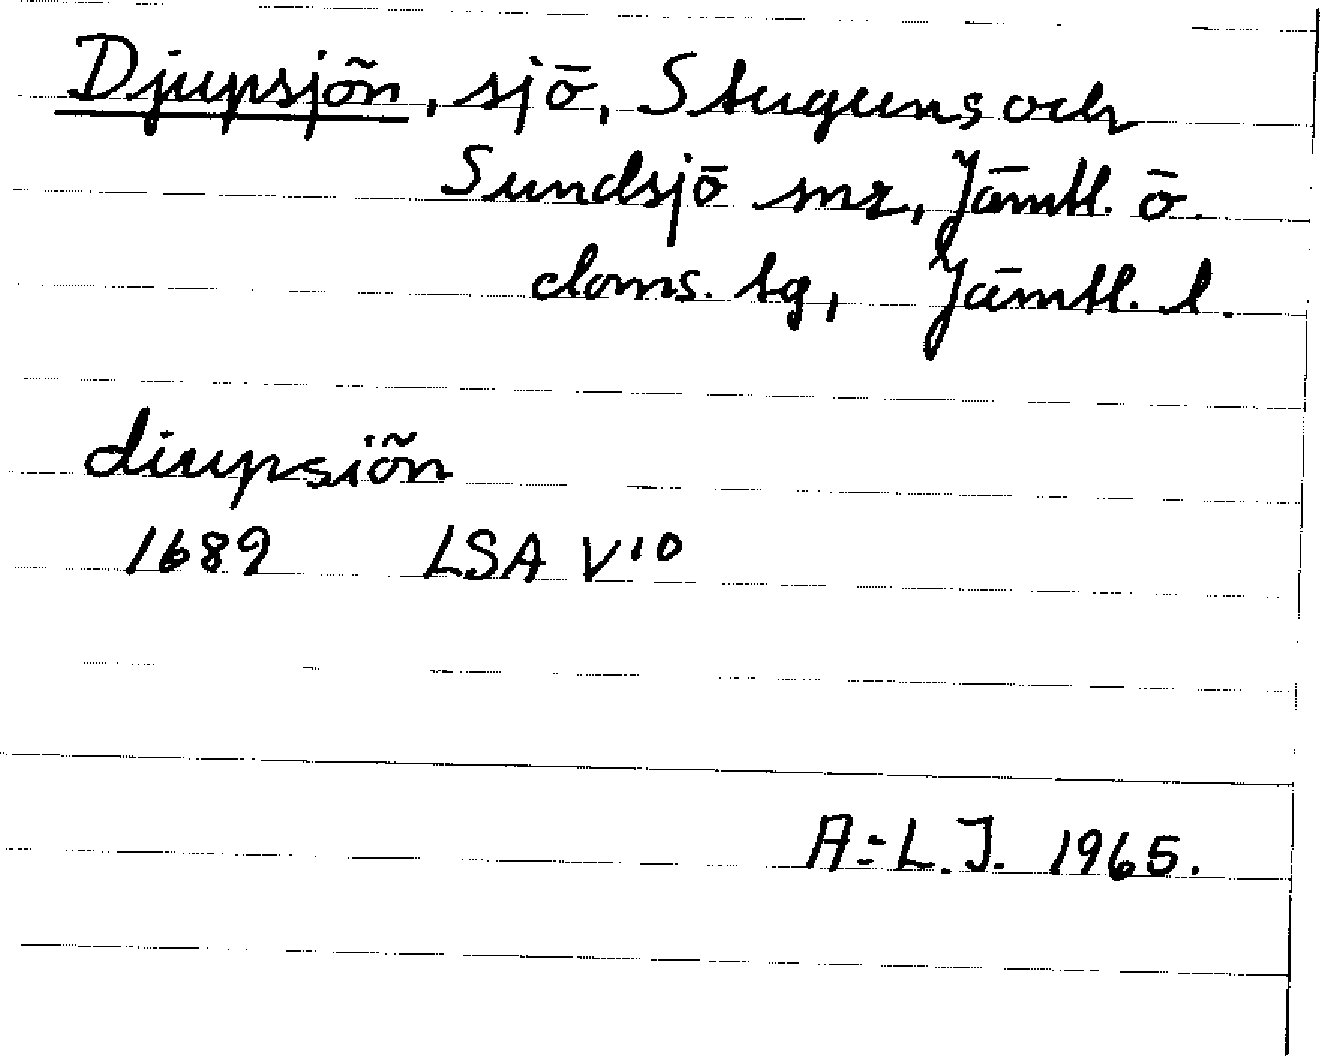 Djupsjön, sjö, Stuguns och
Sundsjö snr, Jämtl. ö.
doms. tg, Jämtl. l.
diupsiön
1689 LSA V10
A-L. J. 1965.